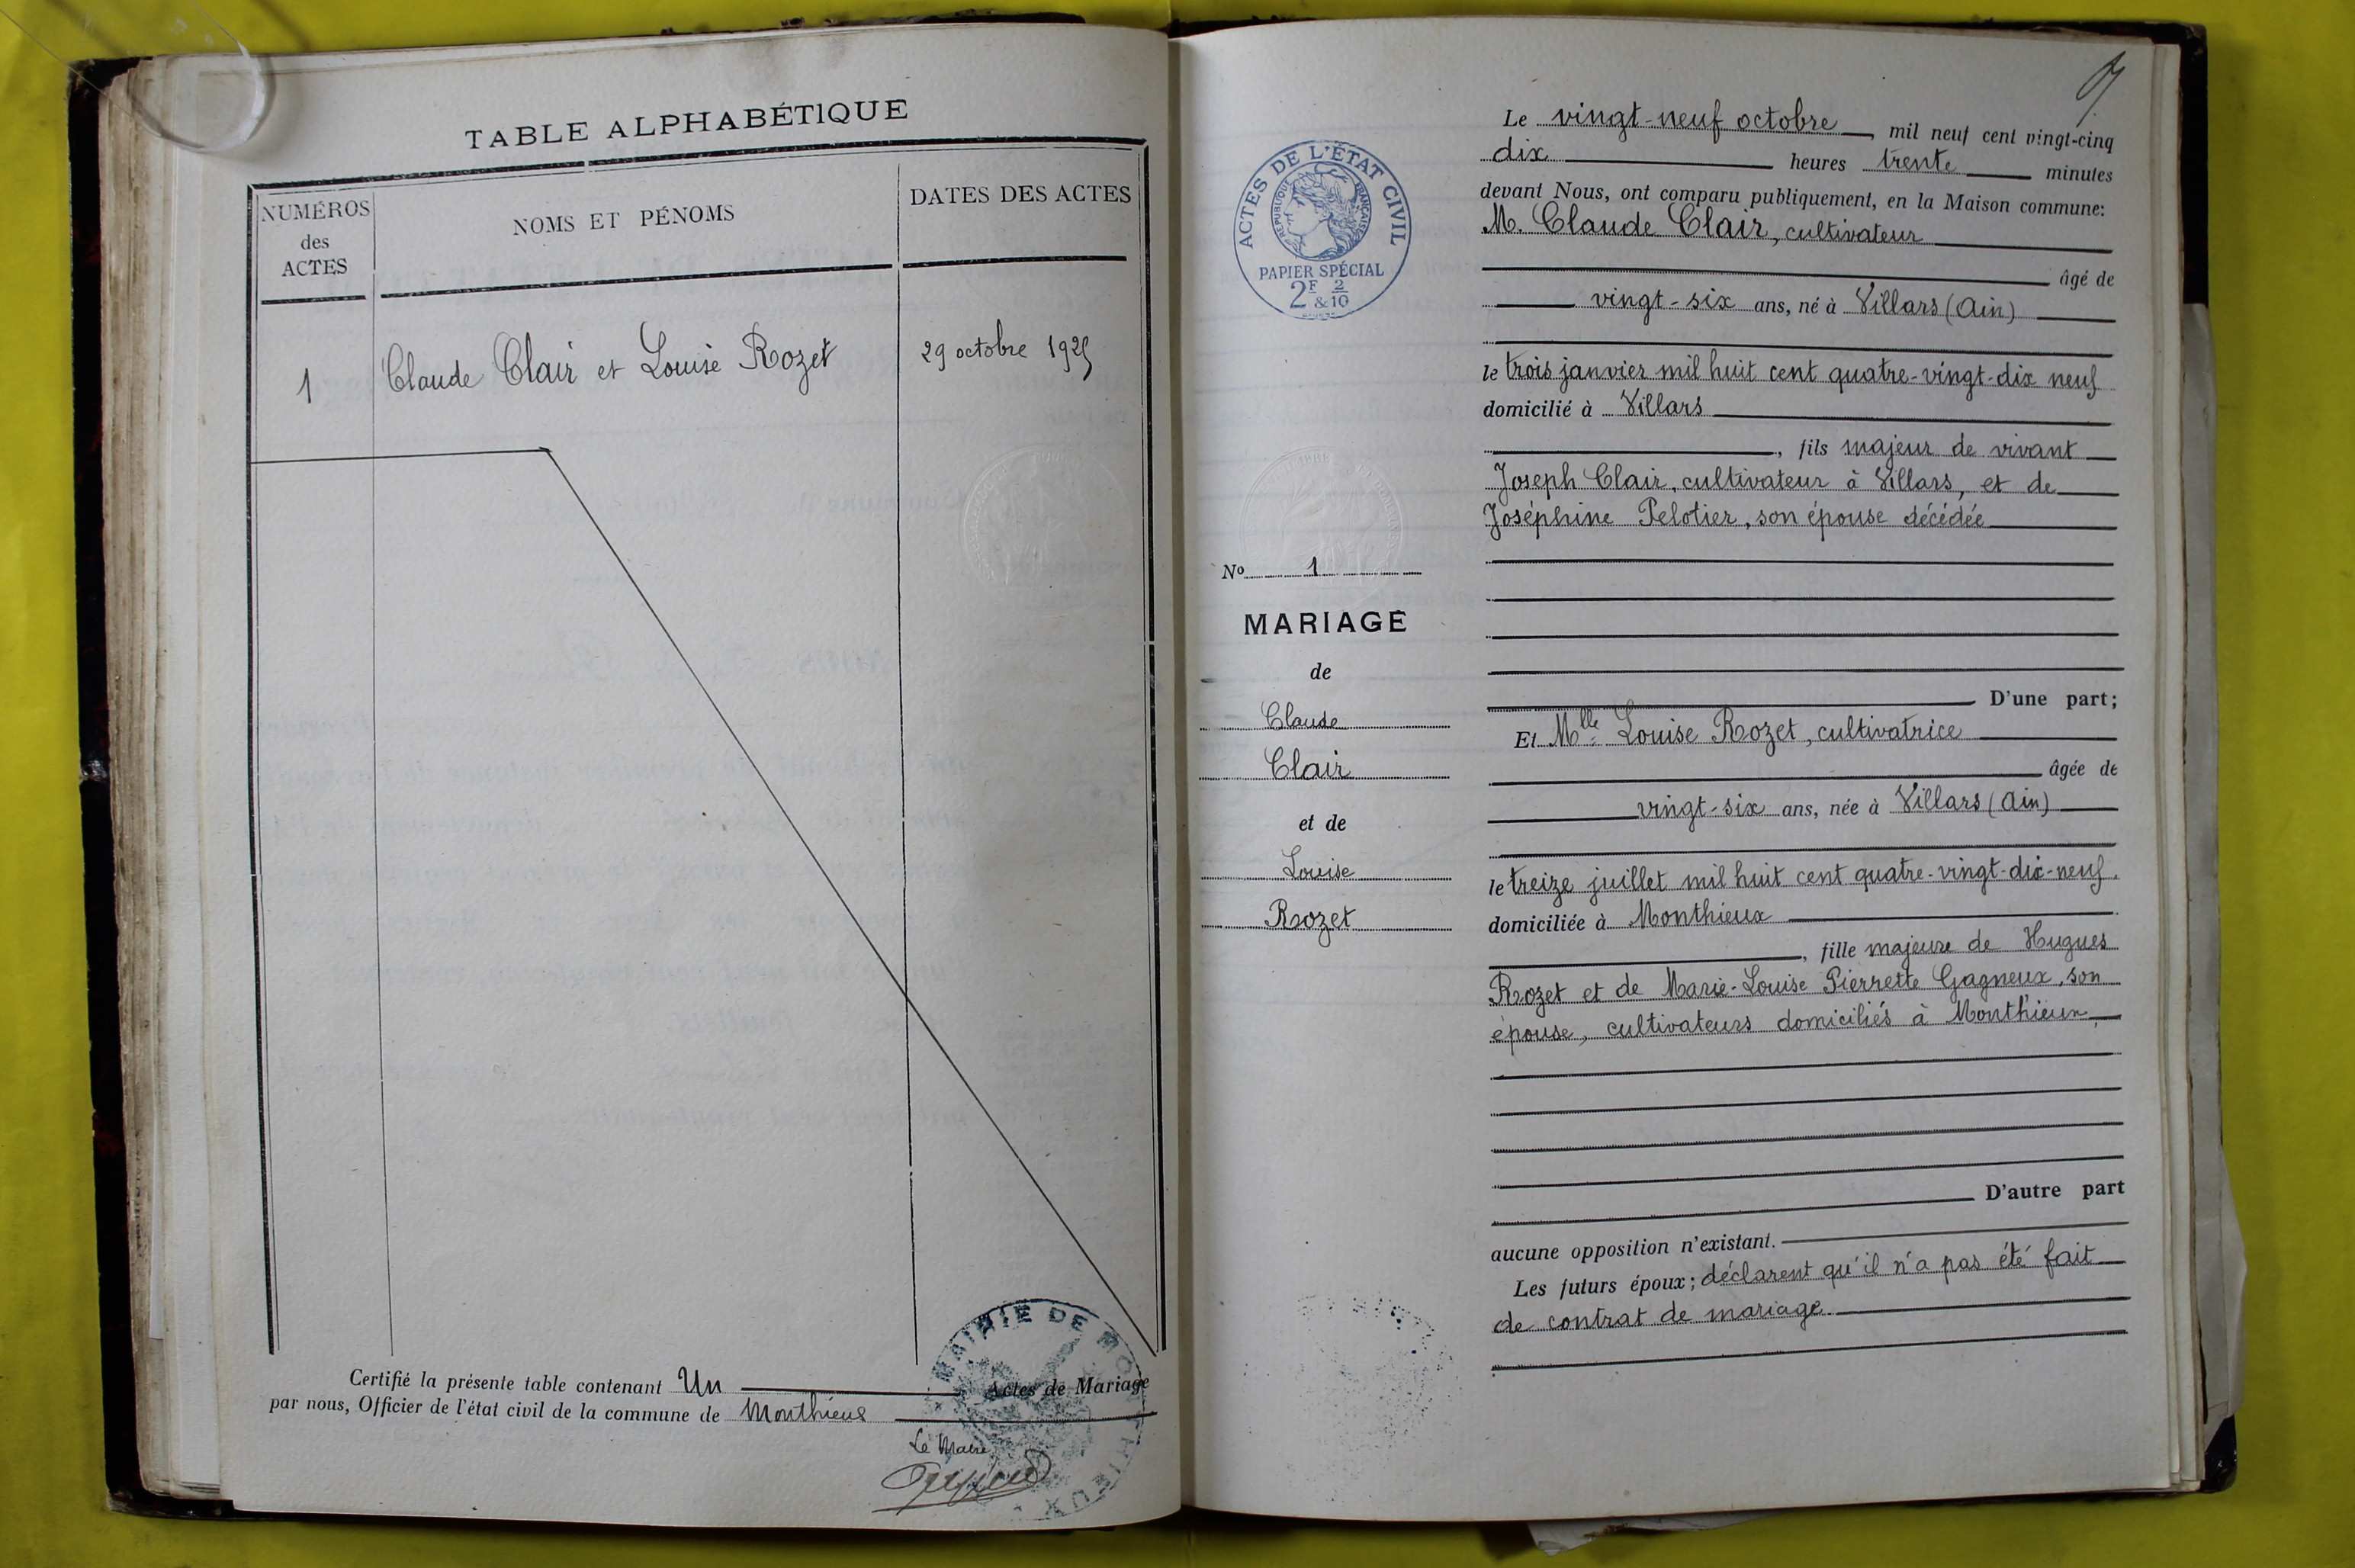 TABLE ALPHABÉTIQUE
NUMÉROS
des
ACTES
NOMS ET PÉNOMS
DATES DES ACTES
1 Claude Clair et Louise Rozet 29 octobre 1925
Certifié la présente table contenant Un Actes de Mariage
par nous, Officier de l'état civil de la commune de Monthieux
Le Maire
MAIRIE DE MONTHIEUX
ACTES DE L'ÉTAT CIVIL
RÉPUBLIQUE FRANÇAISE
PAPIER SPÉCIAL
2F & 2/10
No 1
MARIAGE
de
Claude
Clair
et de
Louise
Rozet
Le vingt-neuf octobre mil neuf cent vingt-cinq
dix heures trente minutes
devant Nous, ont comparu publiquement, en la Maison commune:
M. Claude Clair, cultivateur
âgé de
vingt-six ans, né à Villars (Ain)
le trois janvier mil huit cent quatre-vingt-dix neuf
domicilié à Villars
, fils majeur de vivant
Joseph Clair, cultivateur à Villars, et de
Joséphine Pelotier, son épouse décédée
D'une part;
Et Mlle Louise Rozet, cultivatrice
âgée de
vingt-six ans, née à Villars (Ain)
le treize juillet mil huit cent quatre-vingt-dix-neuf.
domiciliée à Monthieux
, fille majeure de Hugues
Rozet et de Marie-Louise Pierrette Gagneux, son
épouse, cultivateurs domiciliés à Monthieux,
D'autre part
aucune opposition n'existant.
Les futurs époux; déclarent qu'il n'a pas été fait
de contrat de mariage.